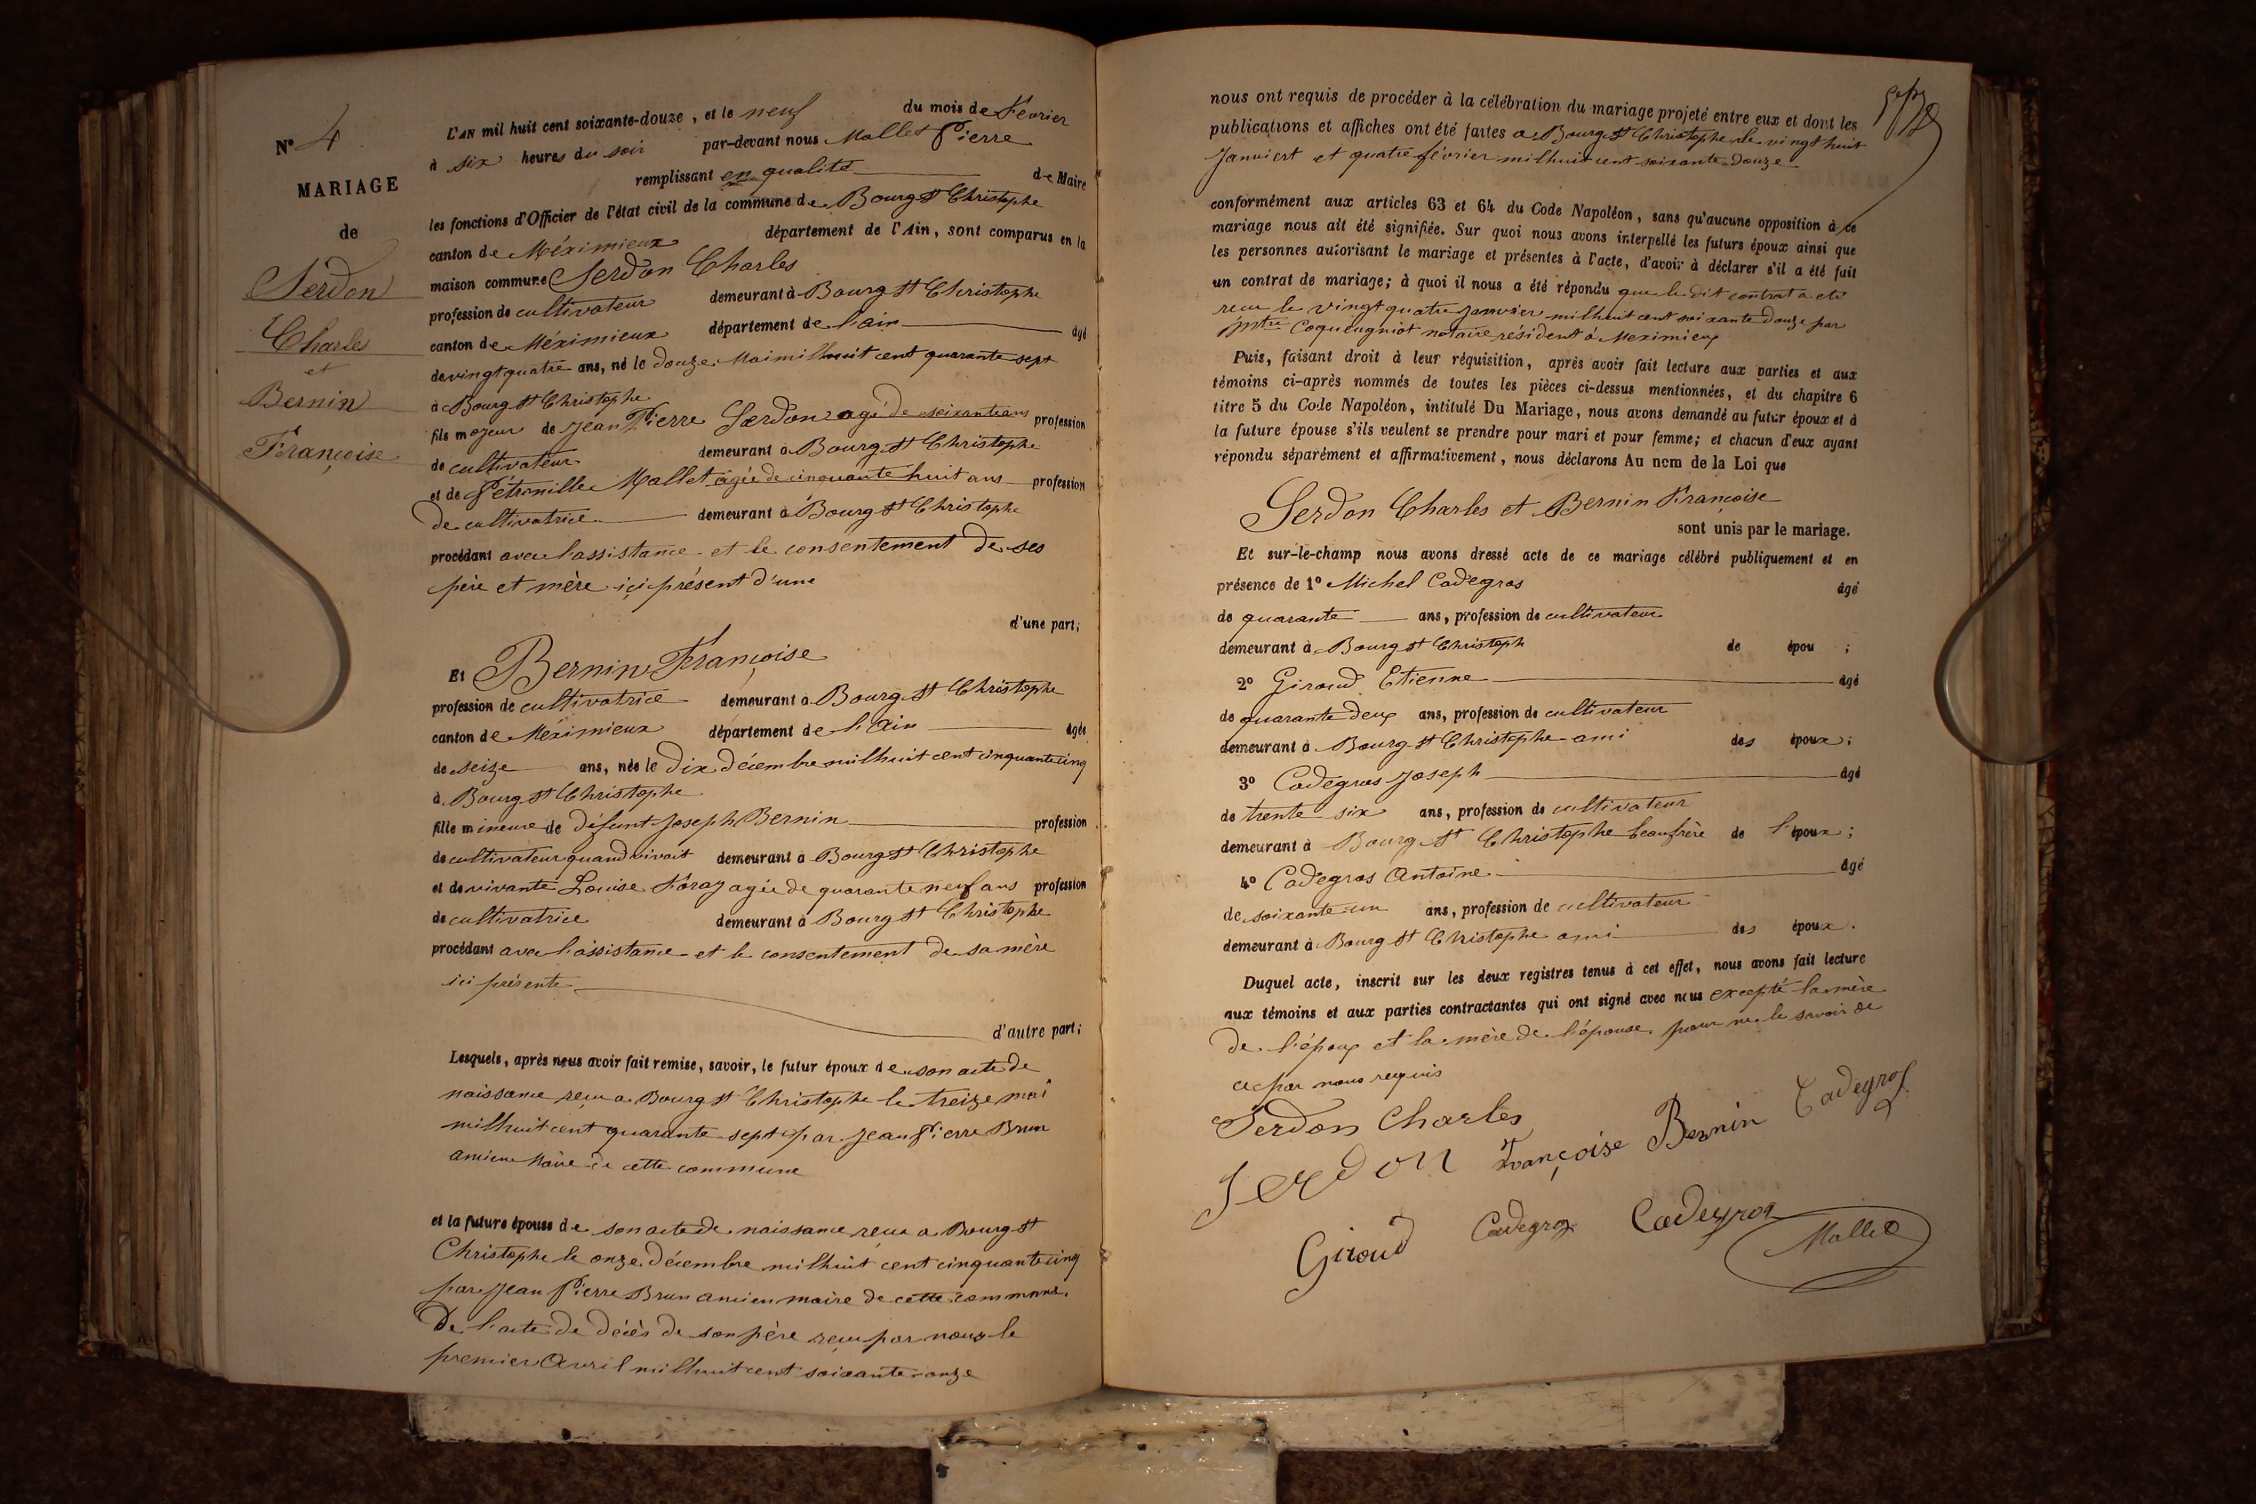 N° 4
MARIAGE
de
Serdon
Charles
et
Bernin
Françoise
L'AN mil huit cent soixante-douze, et le neuf du mois de Février
à six heures du soir par-devant nous Mallet Pierre
remplissant en qualité de Maire
les fonctions d'Officier de l'état civil de la commune de Bourg St Christophe
canton de Méximieux département de l'Ain, sont comparus en la
maison commune Serdon Charles
profession de cultivateur demeurant à Bourg St Christophe
canton de Méximieux département de l'ain âgé
de vingt quatre ans, né le douze Mai mil huit cent quarante sept
à Bourg St Christophe
fils majeur de Jean Pierre Serdon agé de soixante ans profession
de cultivateur demeurant à Bourg St Christophe
et de Pétronille Mallet agée de cinquante huit ans profession
De cultivatrice demeurant à Bourg St Christophe
procédant avec l'assistance et le consentement de ses
père et mère içi présent d'une
d'une part;
Et Bernin Françoise
profession de cultivatrice demeurant à Bourg St Christophe
canton de Méximieux département de l'Ain âgée
de seize ans, née le dix décembre mil huit cent cinquante cinq
à Bourg St Christophe
fille mineure de défunt Joseph Bernin profession
de cultivateur quand vivait demeurant à Bourg St Christophe
et de vivante Louise Foray agée de quarante neuf ans profession
de cultivatrice demeurant à Bourg St Christophe
procédant avec l'assistance et le consentement de sa mère
ici présente
d'autre part;
Lesquels, après nous avoir fait remise, savoir, le futur époux de son acte de
naissance reçu a Bourg St Christophe le treize mai
mil huit cent quarante sept par Jean Pierre Brun
ancien Maire de cette commune
et la future épouse de son acte de naissance reçu a Bourg St
Christophe le onze décembre mil huit cent cinquante cinq
par Jean Pierre Brun ancien maire de cette commune.
De l'acte de décès de son père reçu par nous le
premier Avril mil huit cent soixante onze
nous ont requis de procéder à la célébration du mariage projeté entre eux et dont les
publications et affiches ont été faites a Bourg St Christophe le vingt huit
Janviert et quatre février mil huit cent soixante douze
conformément aux articles 63 et 64 du Code Napoléon, sans qu'aucune opposition à ce
mariage nous ait été signifiée. Sur quoi nous avons interpellé les futurs époux ainsi que
les personnes autorisant le mariage et présentes à l'acte, d'avoir à déclarer s'il a été fait
un contrat de mariage; à quoi il nous a été répondu que le dit contrat a eté
reçu le vingt quatre Janvier mil huit cent soixante douze par
Coquengniot notaire résident à Meximieux
Puis, faisant droit à leur réquisition, après avoir fait lecture aux parties et aux
témoins ci-après nommés de toutes les pièces ci-dessus mentionnées, et du chapitre 6
titre 5 du Code Napoléon, intitulé Du Mariage, nous avons demandé au futur époux et à
la future épouse s'ils veulent se prendre pour mari et pour femme; et chacun d'eux ayant
répondu séparément et affirmativement, nous déclarons Au nom de la Loi que
Serdon Charles et Bernin Françoise
sont unis par le mariage.
Et sur-le-champ nous avons dressé acte de ce mariage célébré publiquement et en
présence de 1° Michel Cadegros âgé
de quarante ans, profession de cultivateur
demeurant à Bourg St Christoph de épou ;
2° Giroud Etienne âgé
de quarante deux ans, profession de cultivateur
demeurant à Bourg St Christophe ami des époux;
3° Cadegros Joseph âgé
de trente six ans, profession de cultivateur
demeurant à Bourg St Christophe beaufrère de l'époux;
4° Cadegros Antoine âgé
de soixante un ans, profession de cultivateur
demeurant à Bourg St Christophe ami des époux.
Duquel acte, inscrit sur les deux registres tenus à cet effet, nous avons fait lecture
aux témoins et aux parties contractantes qui ont signé avec nous excepté la mère
De l'époux et la mère de l'épouse pour ne le savoir de
ce par nous requis
Serdon Charles
Serdon Françoise Bernin Cadegros
Giroud Cadegros Cadegros Mallet